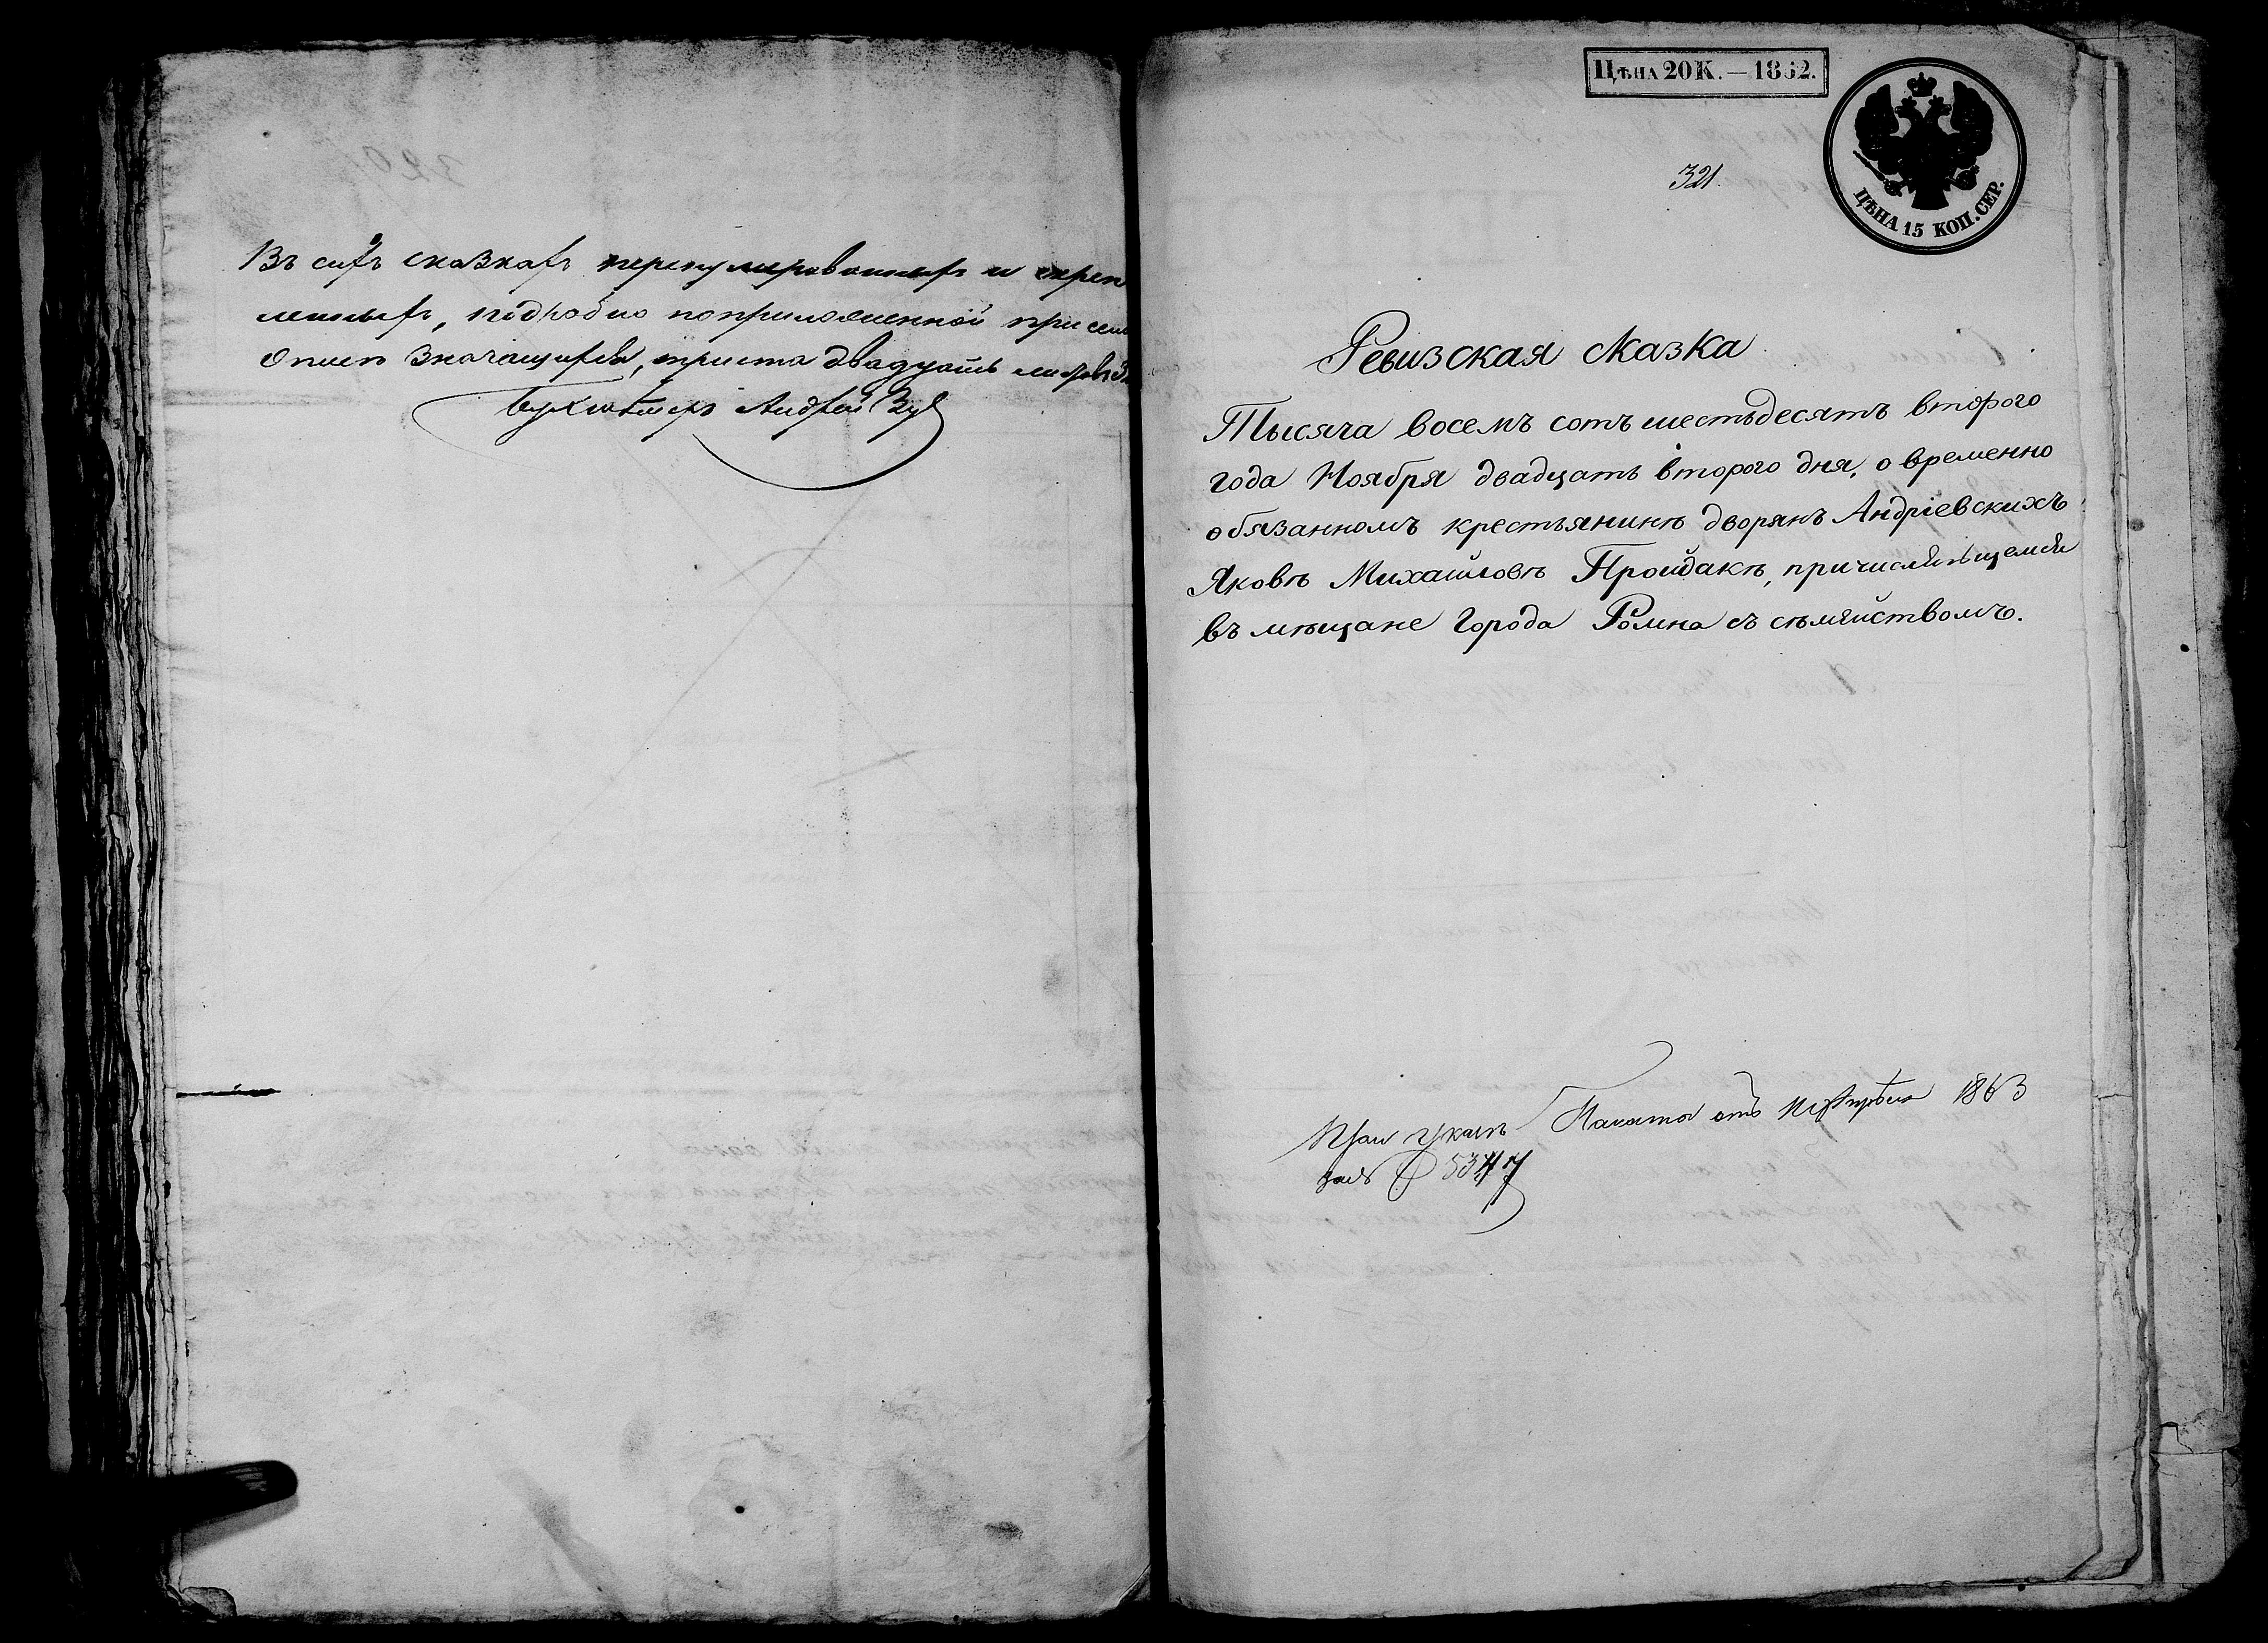 Въ сихъ сказкахъ перенумерованныхъ и скреп
ленныхъ, подробно поприложенной при семъ
описи значащихся, триста двадцать листовъ
Бухгалтеръ Андрей
ЦѢНА 20 К. — 1862.
ЦѢНА 15 КОП. СЕР.
321.
Ревизская сказка
Тысяча восемъ сотъ шестьдесятъ второго
года Ноября двадцать второго дня, о временно
обязанномъ крестьянинѣ дворянъ Андріевскихъ
Яковѣ Михайловѣ Пройдакѣ, причисляющемся
въ мѣщане города Ромна съ сѣмействомъ.
При указѣ Палаты отъ Апрѣля 1863
года № 5347